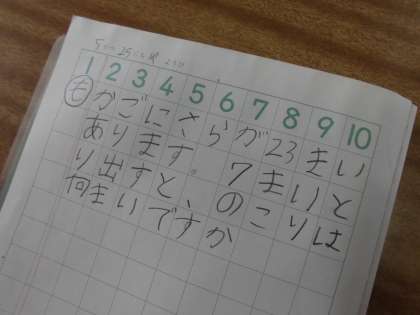 1 2 3 4 5 6 7 8 9 10
も かごにさらが23まい
あります。7まいと
り出すと、のこりは
何まいですか